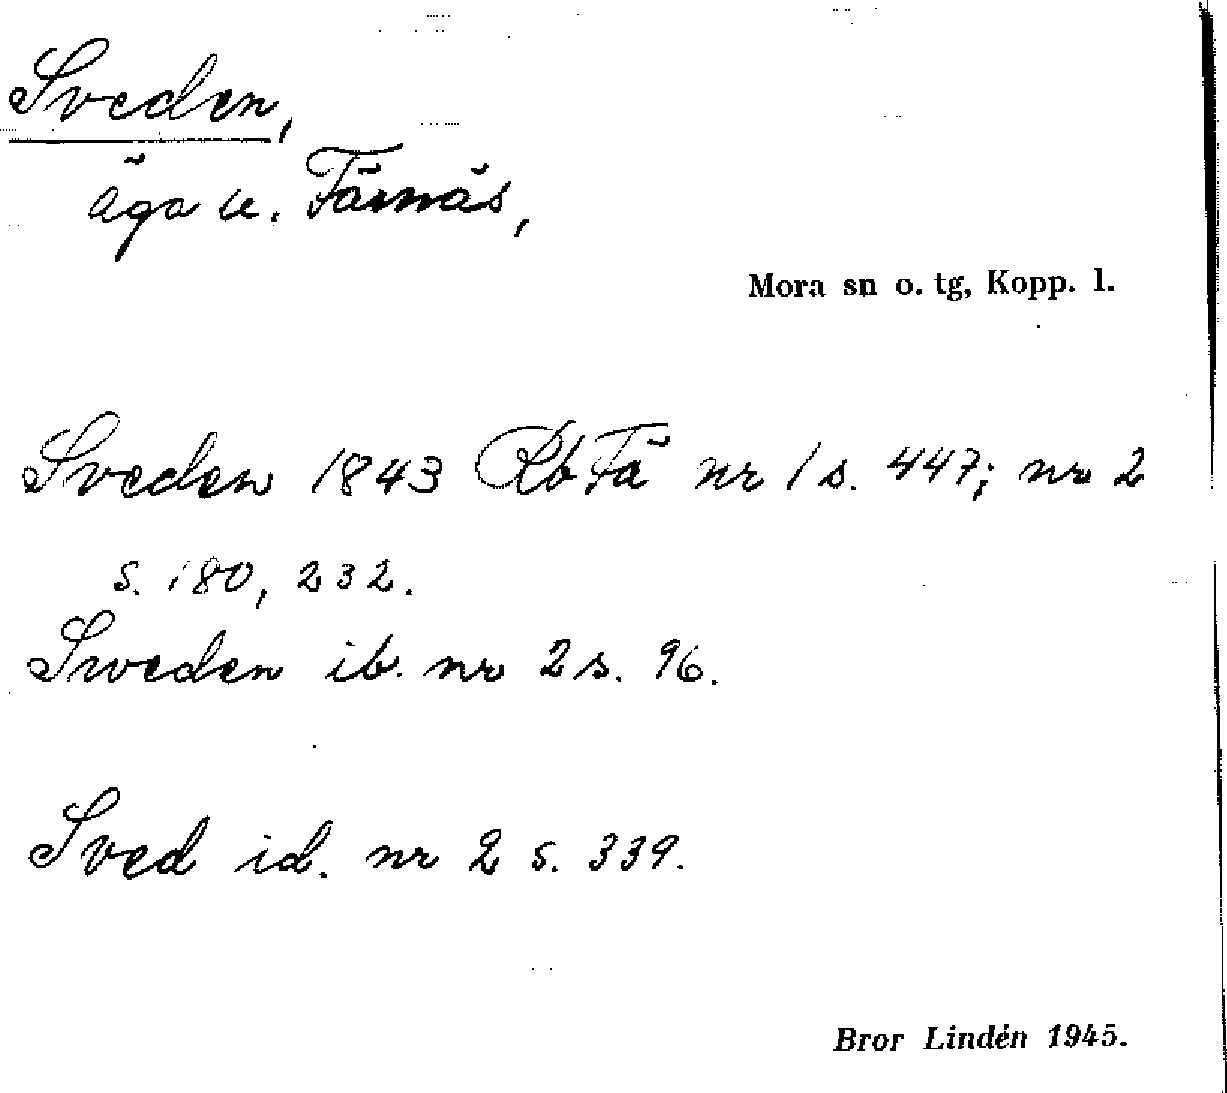 Sveden,
äga u. Färnäs,
Mora sn o. tg, Kopp. l.
Sveden 1843 Rb Fä nr 1 s. 447; nr 2
s. 180, 232.
Sweden ib. nr 2 s. 96.
Sved id. nr 2 s. 339.
Bror Lindén 1945.